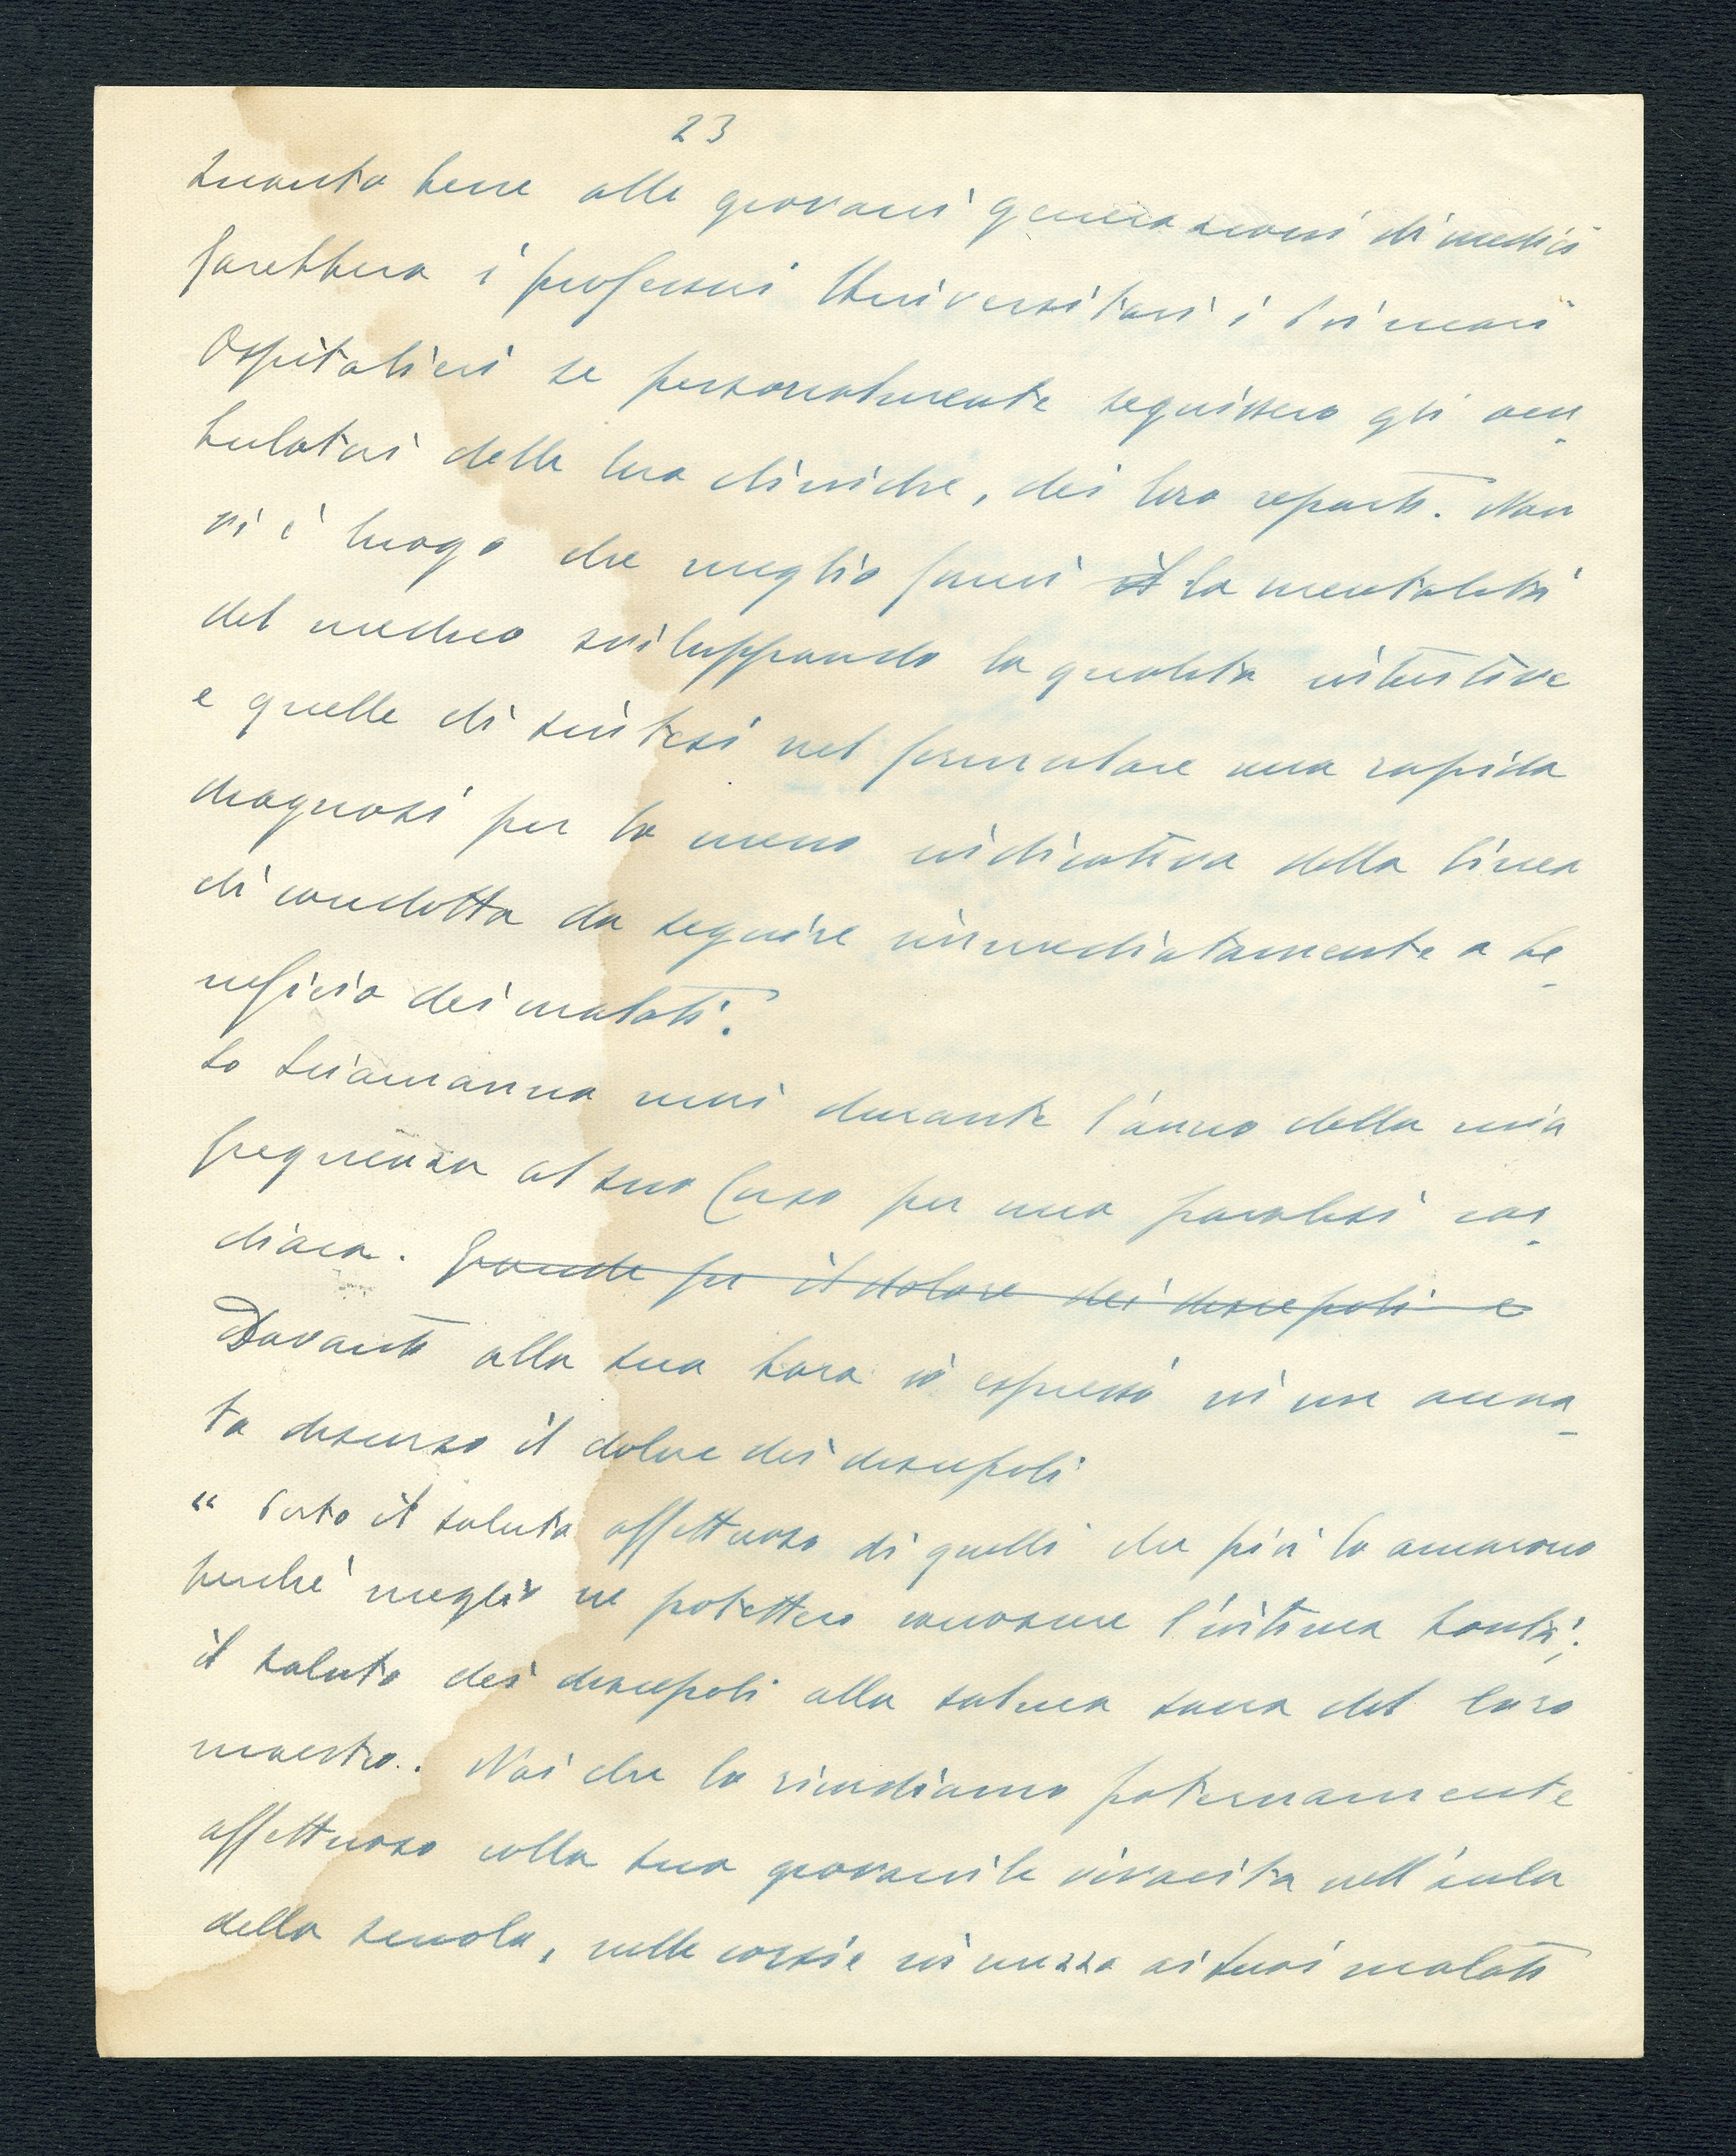 23
Quanto bene alle giovani generazioni di medici
farebbero i professori Universitari i Primari
Ospitalieri se personalmente seguissero gli am
bulatori delle loro cliniche, dei loro reparti. Non
vi è luogo che meglio formi il la mentalità
del medico sviluppando la qualità intuitive
e quelle di sintesi nel formulare una rapida
diagnosi per lo meno indicativa della linea
di condotta da seguire immediatamente a be
neficio dei malati.
Lo Sciamanna morì durante l'anno della mia
frequenza al suo Corso per una paralisi car
diaca. Grande fu il dolore dei discepoli e
Davanti alla sua bara io espressi in un accora
to discorso il dolore dei discepoli
" Porto il saluto affettuoso di quelli che più lo amarono
perchè meglio ne potettero conoscere l'intima bontà;
il saluto dei discepoli alla salma sacra del loro
maestro. Noi che lo ricordiamo paternamente
affettuoso colla sua giovanile vivacità nell'aula
della scuola, nelle corsie in mezzo ai suoi malati